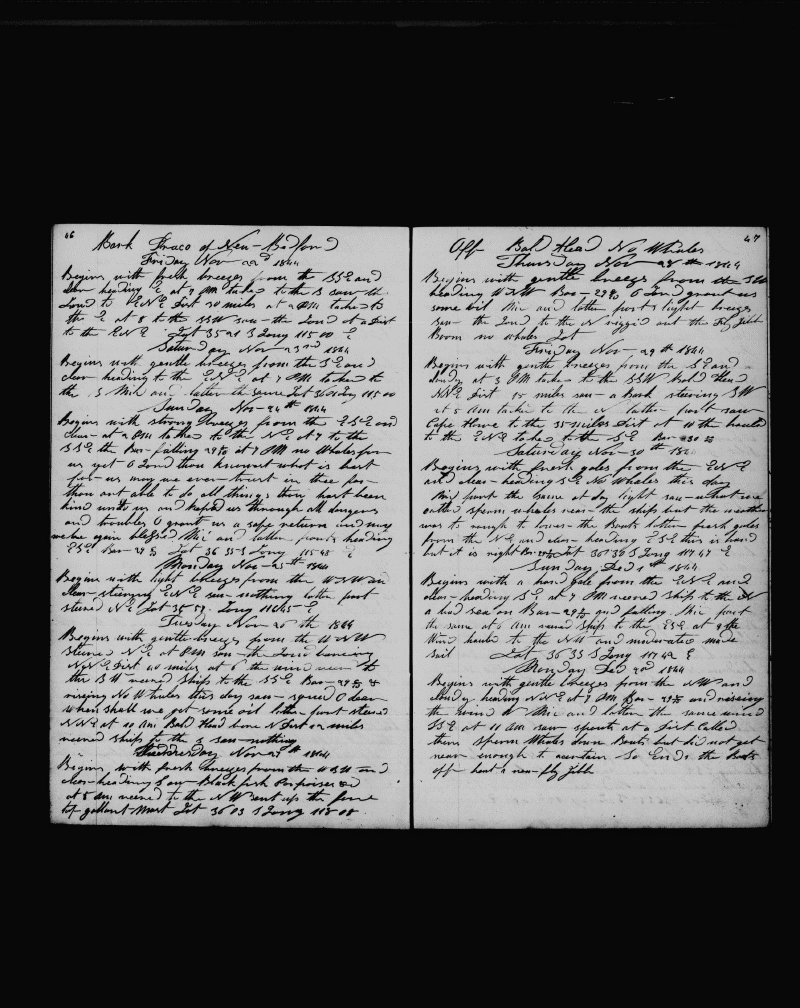 46
Bark Draco of New-Bedford
Friday Nov- 22d 1844
Begins with fresh breezes from the SSE and
clear heading E at 9 PM tacked to the S saw the
Land to ENE Dist 30 miles at 2 AM tacked to
the E at 8 to the SSW saw- the Land at a Dist
to the ENE Lat 35 21 S Long 115 00 E
Saturday Nov- 23rd 1844
Begins with gentle breezes from the SE and
clear heading to the ENE at 7 PM tacked to
the S Mid and latter the same Lat 36 01 Long 115 00
Sunday Nov- 24th 1844
Begins with strong breezes from the ESE and
clear- at 2 PM tacked to the NE at 7 to the
SSE the Bar- falling at 7 PM no Whales for
us yet O Lord thou knowest what is best
for- us may we ever- trust in thee for-
thou art able to do all things thou hast been
kind unto us and kept us through all dangers
and troubles O grant us a safe return and may
we be again blessed Mid and latter parts heading
ESE Bar- 29 Lat 36 35 S Long 115 48 E
Monday Nov- 25th 1844
Begins with light breezes from the WNW and
clear- steering ENE saw- nothing latter part
steered NE Lat 35 59 Long 116 45 E
Tuesday Nov- 26th 1844
Begins with gentle breezes from the WNW
steered NE at PM saw- the Land bearing
NNE Dist 40 miles at 6 the wind veered to
the SW weared ships to the SSE Bar- 29
rising No Whales this day saw- squid O dear
when shall we get some oil latter- part steered
NNE at 10 AM Bald Head bore N Dist 12 miles
weared ships to the S saw- nothing
Wednesday Nov- 27th 1844
Begins with fresh breezes from the WSW and
clear- heading S saw Black fish Porpoises and
at 5 AM weared to the NW sent up the fore
top gallant Mast Lat 36 03 S Long 118 08
47
Off Bald Head No Whales
Thursday Nov- 28th 1844
Begins with gentle breezes from the SW
heading WNW Bar- 29 O Lord grant us
some oil Mid and latter parts light breezes
saw- the Land to the N rigged out the Fly Jibb
Boom no whales Lat
Friday Nov- 29th 1844
Begins with gentle breezes from the SE and
cloudy at 3 PM tacked to the SSW Bald Head
NNE Dist 15 miles saw- a Bark steering SW
at 5 AM tacked to the N latter- part saw
Cape Howe to the 35 miles Dist at 11 the hauled
to the ENE tacked to the SE Bar- 30
Saturday Nov- 30th 1844
Begins with fresh gales from the ENE
and clear- heading SE No Whales this day
Mid part the same at day light saw- what we
called sperm whales near- the ships but the weather
was to rough to lower- the Boats latter- fresh gales
from the NE and clear- heading ESE this is hard
but it is right Bar- Lat 36 30 S Long 117 47 E
Sunday Dec 1st 1844
Begins with a hard gale from the ENE and
clear- heading SE at 7 PM weared ship to the N
a bad sea on Bar- 29 and falling Mid part
the same at 6 AM weared ships to the ESE at 9 the
Wind hauled to the NW and moderated made
Sail Lat 36 35 S Long 117 42 E
Monday Dec 2nd 1844
Begins with gentle breezes from the NW and
cloudy heading NNE at 7 PM Bar- 29 and raising
the wind W Mid and latter the same weared
SSE at 11 AM saw spouts at a Dist Called
them Sperm Whales down Boats but did not get
near enough to ascertain So Ends the Boats
off bent a new- fly Jibb